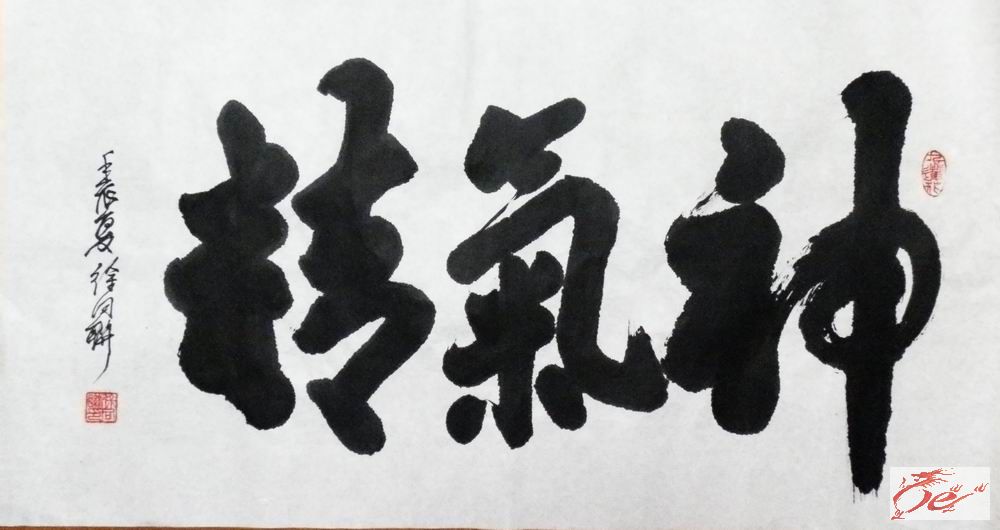 精氣神
壬辰夏 徐同